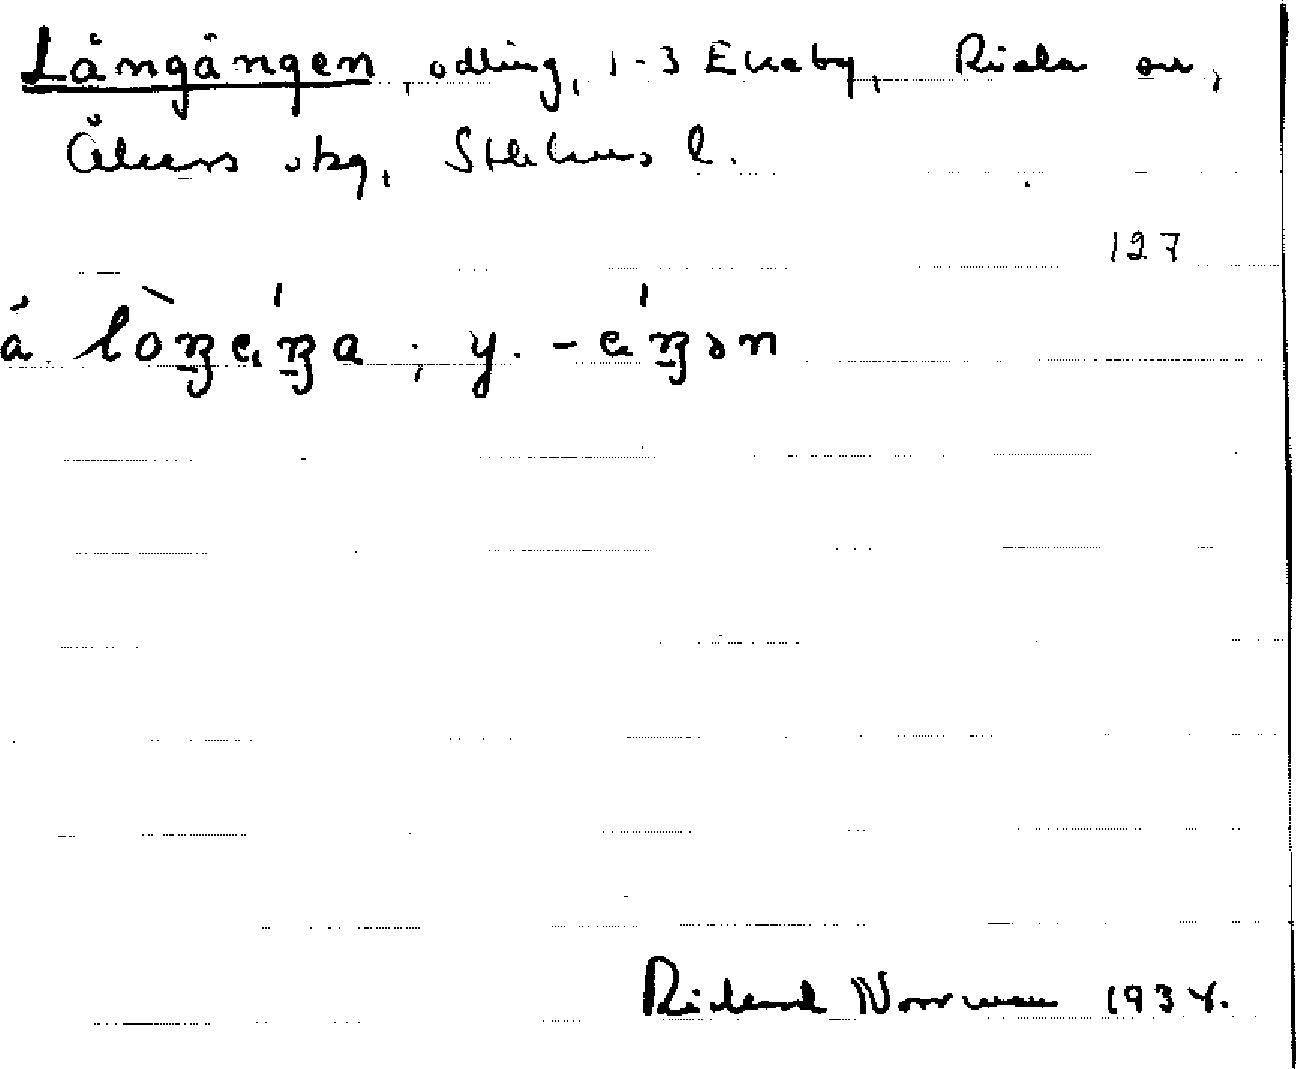 Långängen, odling, 1-3 Ekeby, Riala sn,
Åkers skg, Sthlms l.
127
å lòŋɛ́ŋa; y. -ɛ́ŋən
Rickard Norrman 1934.